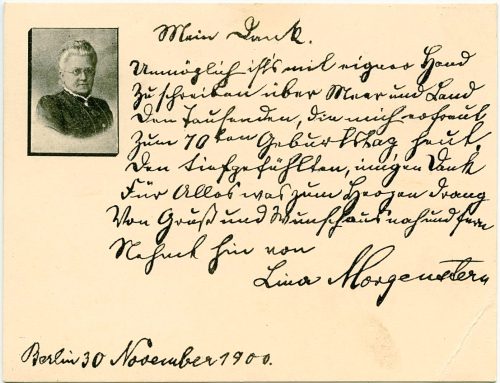 Mein Dank.
Unmöglich ist's mit eigner Hand
Zu schreiben über Meer und Land
Den Tausenden, die mich erfreut
Zum 70ten Geburtstag heut,
Den tiefgefühlten, innigen Dank
Für Alles was zum Herzen drang
Von Gruß und Wunsch aus nah und fern
Nehmt hin von
Lina Morgenstern
Berlin 30 November 1900.